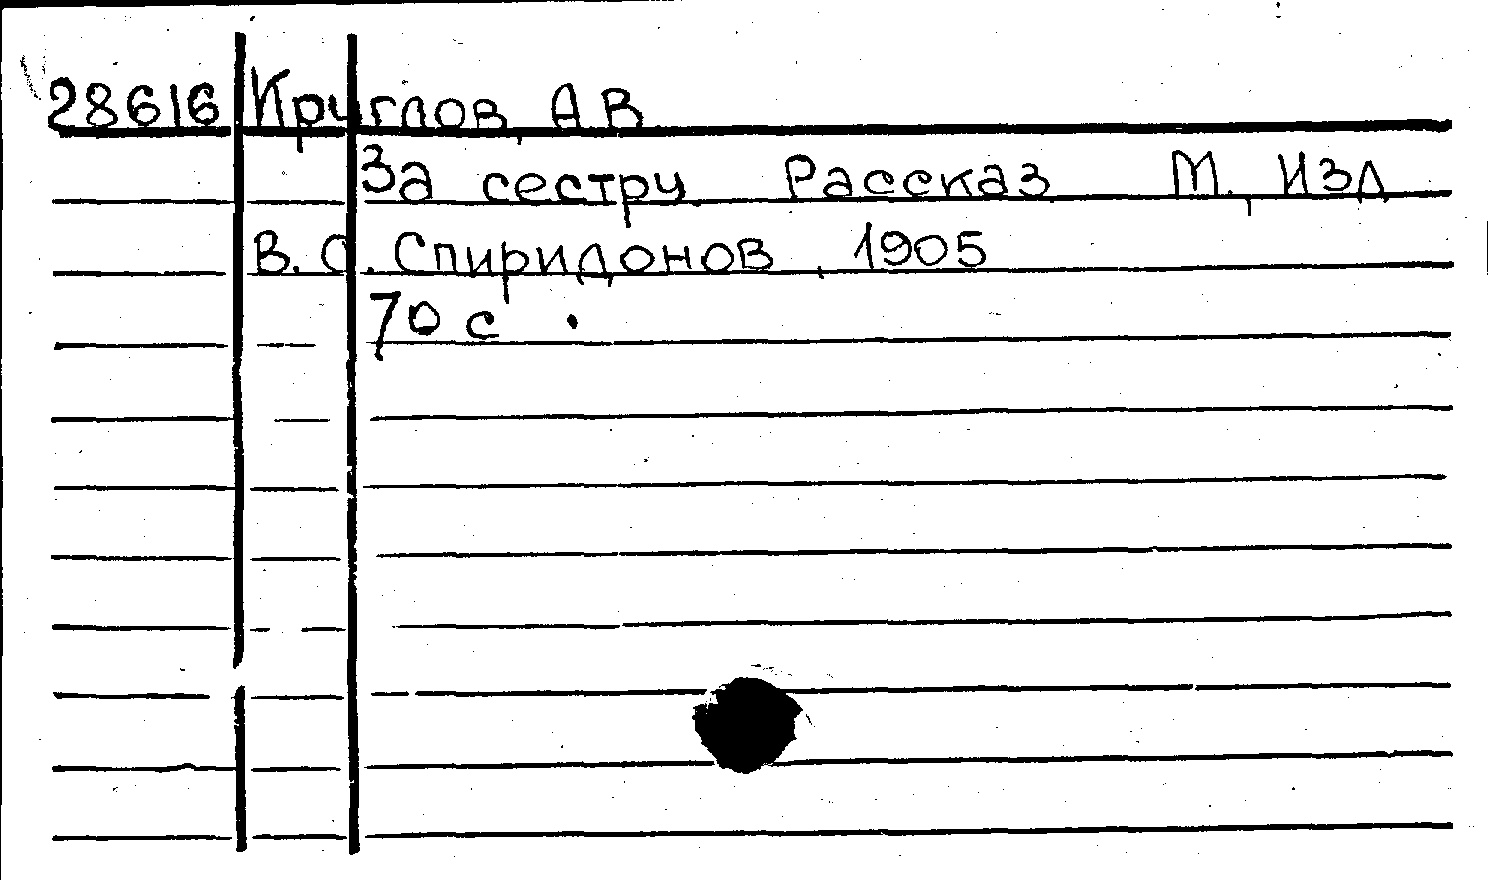 28616 Круглов, А.В.
За сестру. Рассказ. М., Изд.
В.С. Спиридонов, 1905.
70 с.